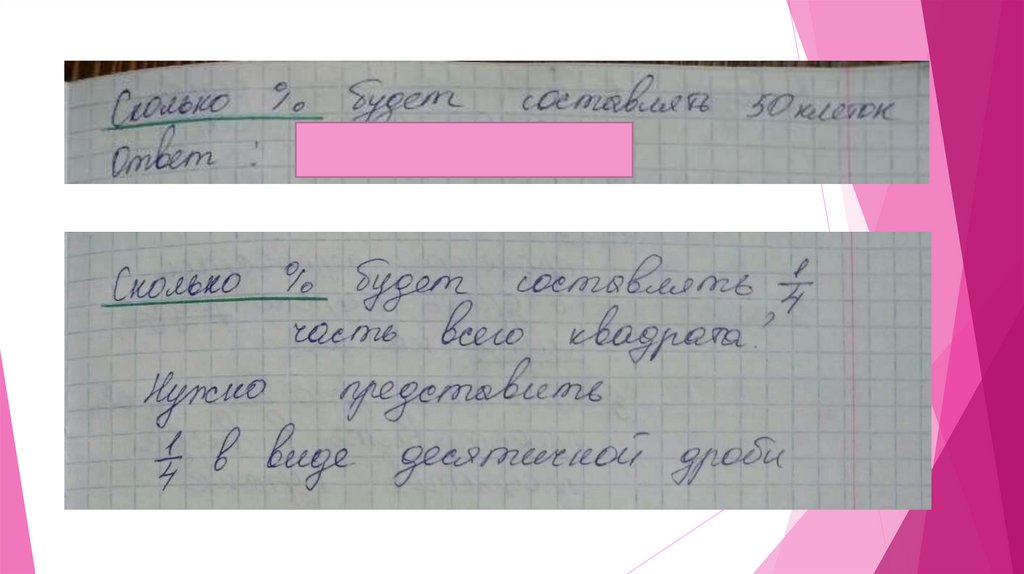 Сколько % будет составлять 50 клеток
Ответ :
Сколько % будет составлять 1/4
часть всего квадрата?
Нужно представить
1/4 в виде десятичной дроби